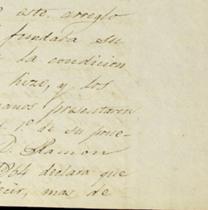 e este arreglo
fundara su
la condicion
hize, y los
anos presentaron
1º de su pone-
D. Ramon
864 declara que
cir, mas de